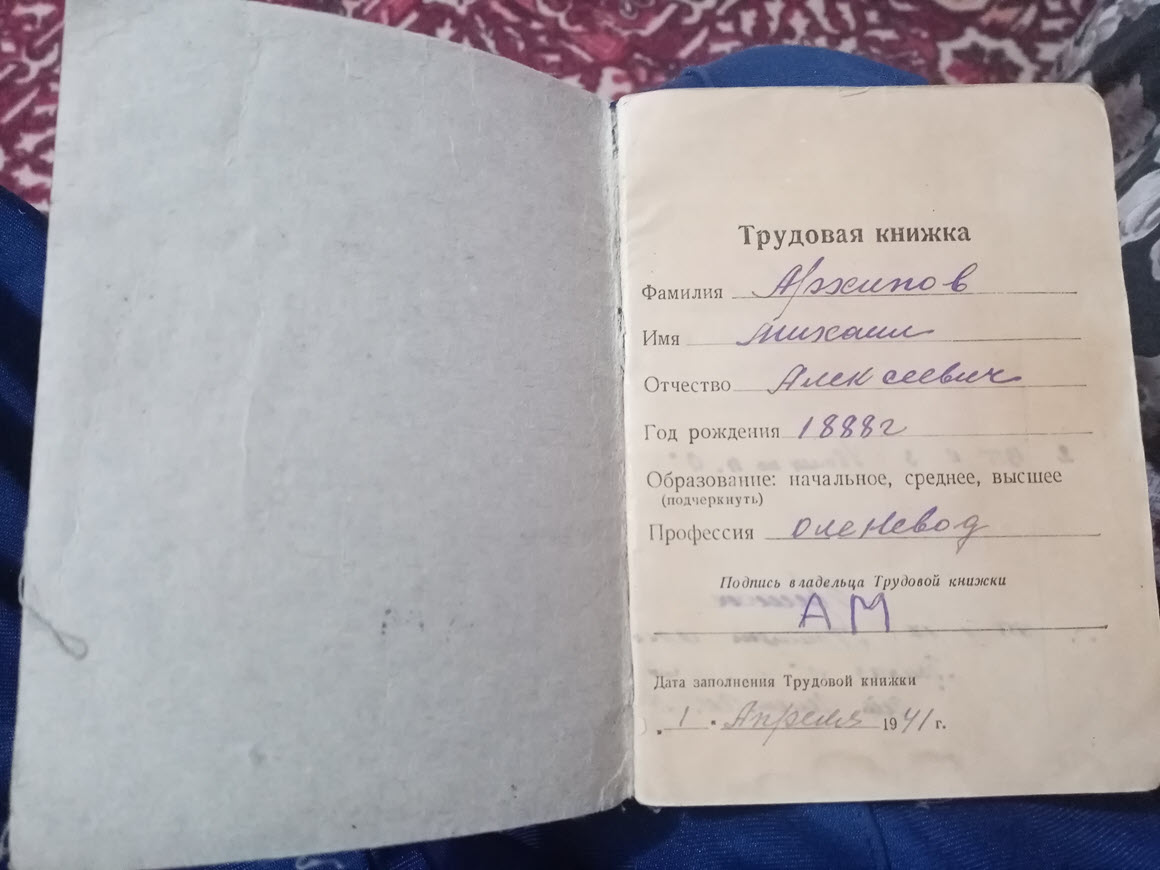 Трудовая книжка
Фамилия Архипов
Имя Михаил
Отчество Алексеевич
Год рождения 1888г
Образование: начальное, среднее, высшее
(подчеркнуть)
Профессия оленевод
Подпись владельца Трудовой книжки
АМ
Дата заполнения Трудовой книжки
„1" Апреля 1941 г.